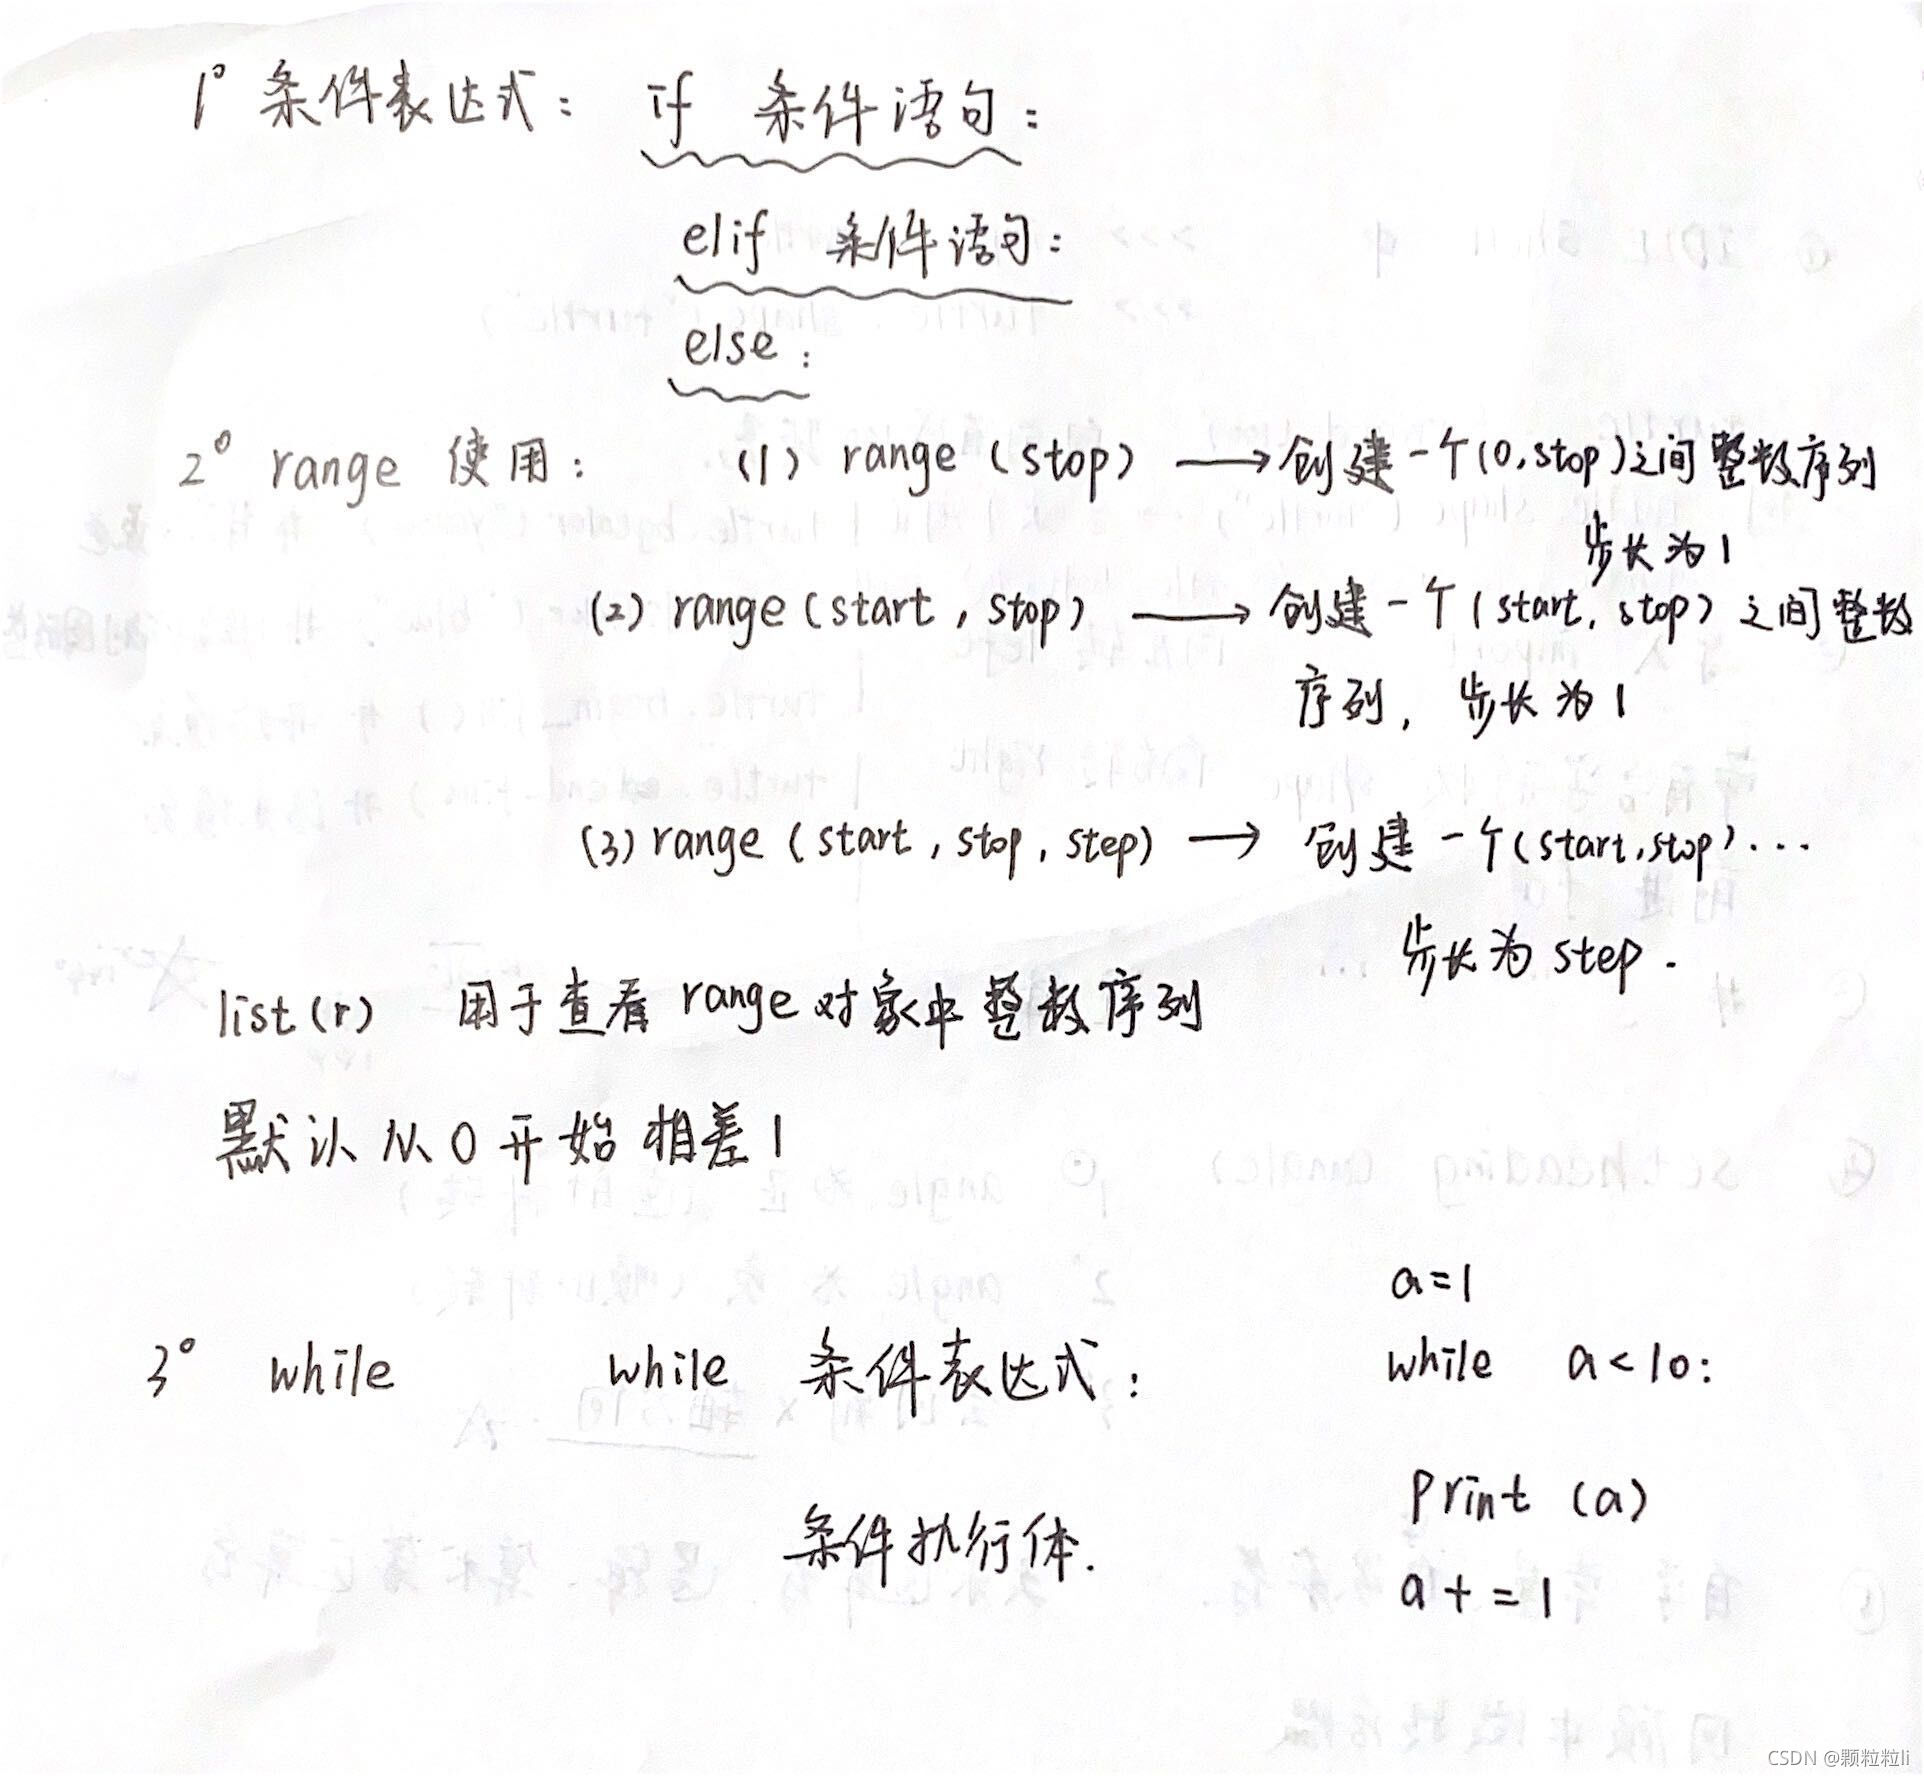 1° 条件表达式： if 条件语句：
elif 条件语句：
else：
2° range 使用： (1) range (stop) → 创建一个(0,stop)之间整数序列
步长为1
(2) range (start, stop) → 创建一个(start, stop)之间整数
序列, 步长为1
(3) range (start, stop, step) → 创建一个(start,stop)...
步长为 step.
list(r) 用于查看 range 对象中整数序列
默认从0开始相差1
a=1
3° while while 条件表达式： while a<10:
print (a)
条件执行体.
a+=1
CSDN @颗粒粒li